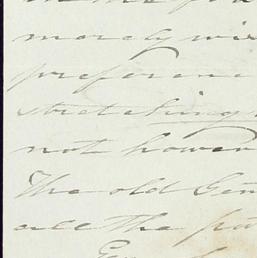 merely wi
preferenc
stretching
not howev
The old Gen
all the pa